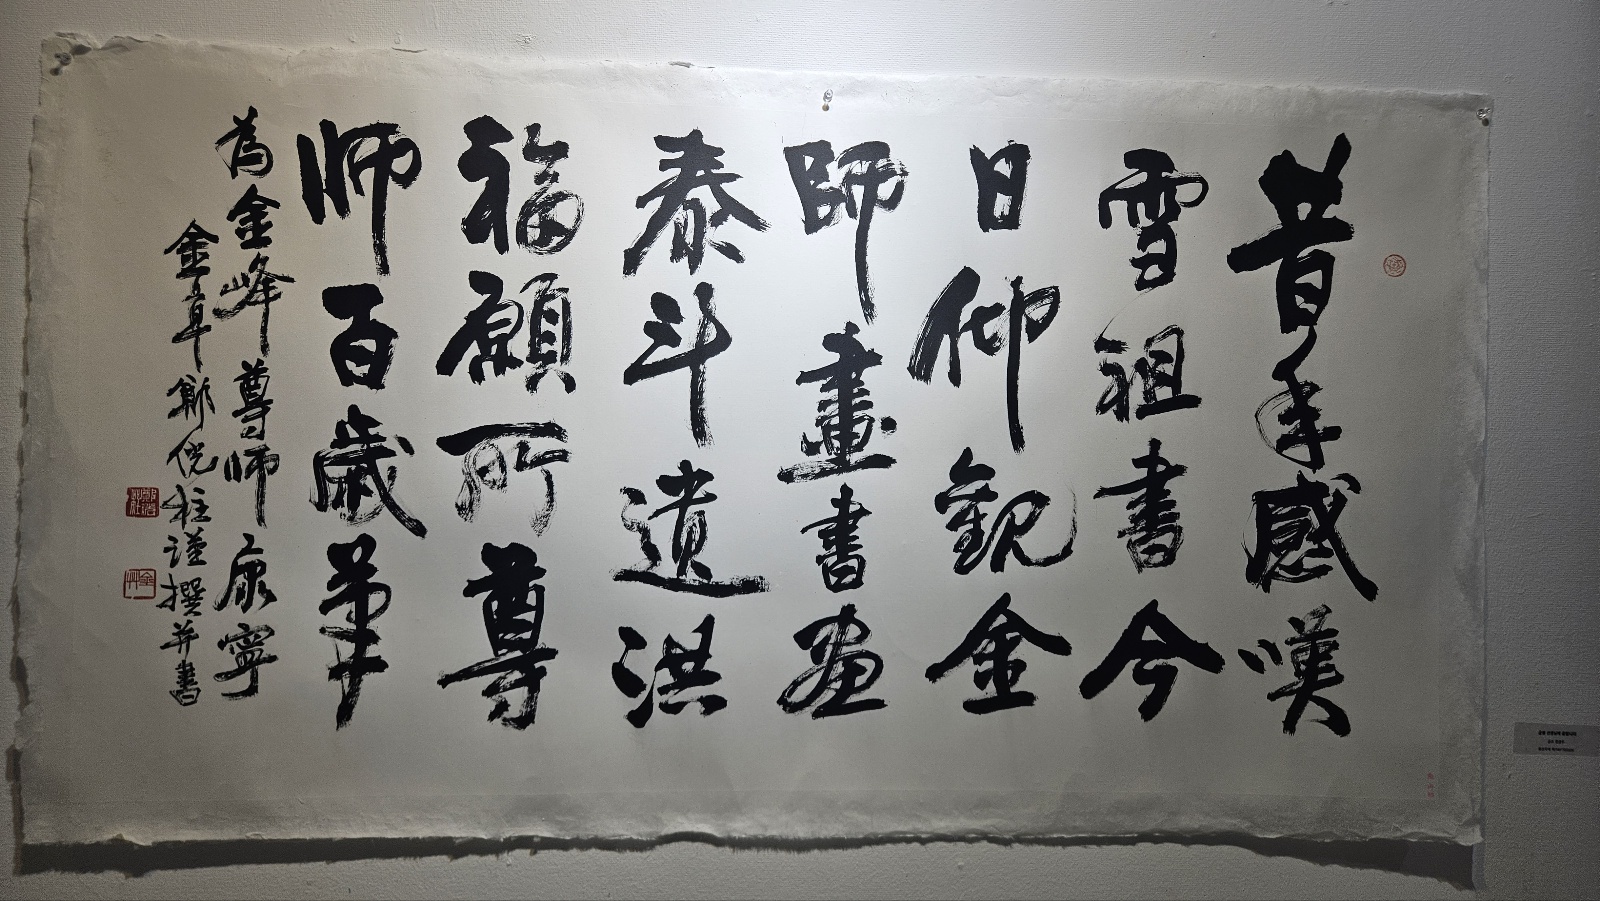 昔年感嘆
雪祖書今
日仰觀金
師畫書画
泰斗遺洪
福願所尊
師百歲筆
為金峰尊師康寧
金草鄭倪柱謹撰并書